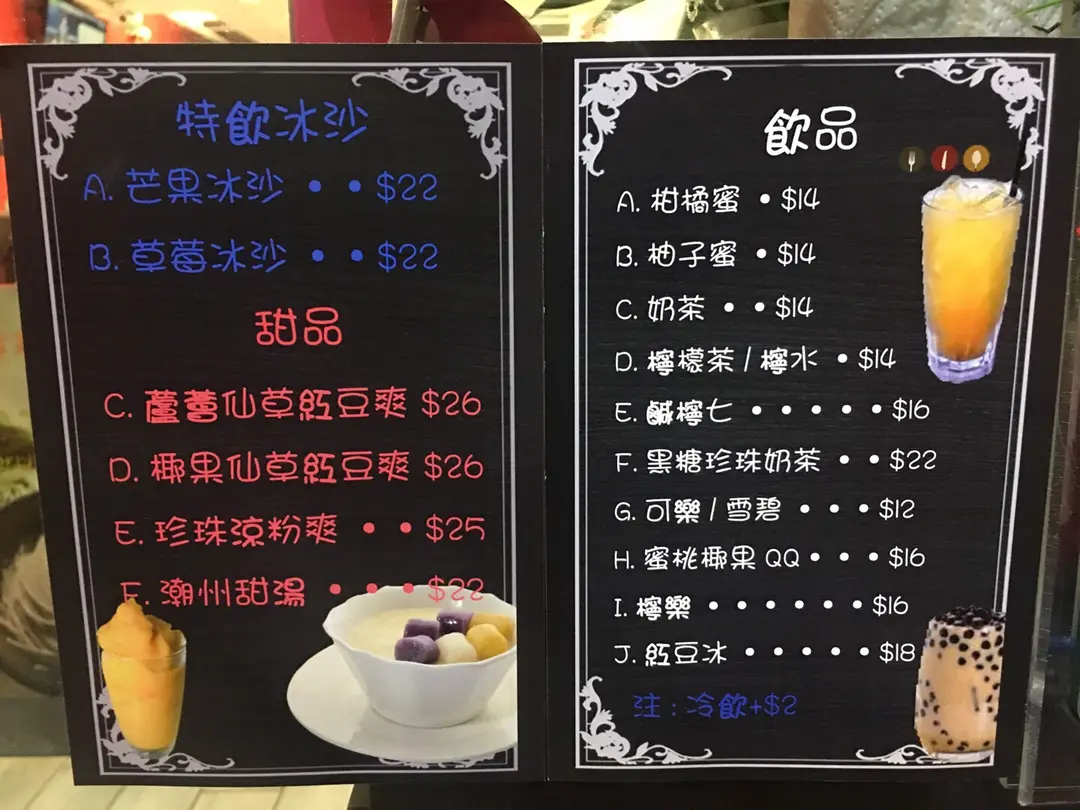 特飲冰沙
A. 芒果冰沙 • • $22
B. 草莓冰沙 • • $22
甜品
C. 蘆薈仙草紅豆爽 $26
D. 椰果仙草紅豆爽 $26
E. 珍珠涼粉爽 • • $25
F. 潮州甜湯 • • • $22
飲品
A. 柑橘蜜 • $14
B. 柚子蜜 • $14
C. 奶茶 • • $14
D. 檸檬茶 / 檸水 • $14
E. 鹹檸七 • • • • • $16
F. 黑糖珍珠奶茶 • • $22
G. 可樂 / 雪碧 • • • $12
H. 蜜桃椰果 QQ • • • $16
I. 檸樂 • • • • • • $16
J. 紅豆冰 • • • • • $18
注 : 冷飲+$2